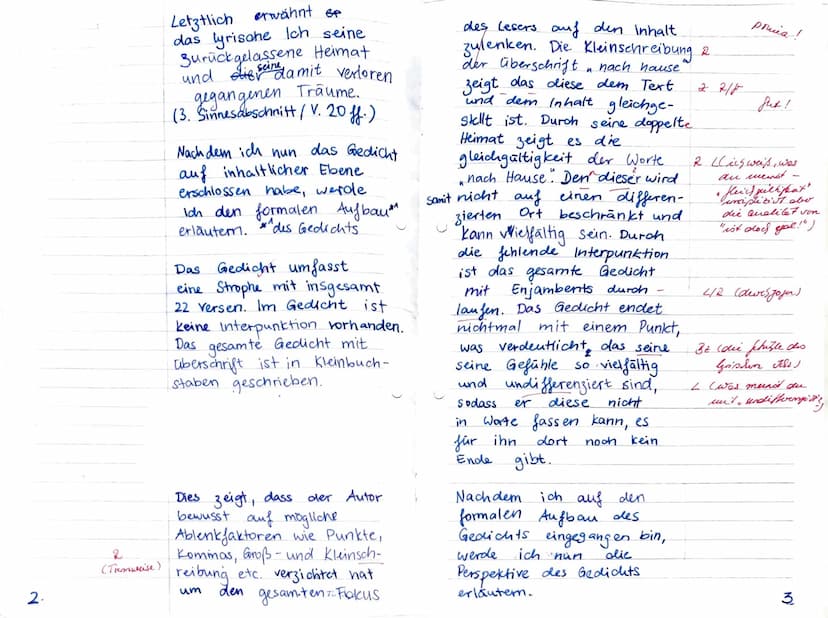 Letztlich erwähnt
das lyrische Ich seine
zurückgelassene Heimat
und seine damit verloren
gegangenen Träume.
(3. Sinnesabschnitt / V. 20 ff.)
Nachdem ich nun das Gedicht
auf inhaltlicher Ebene
erschlossen habe, werde
ich den formalen Aufbau*¹
erläutern. *¹ des Gedichts
Das Gedicht umfasst
eine Strophe mit insgesamt
22 Versen. Im Gedicht ist
keine Interpunktion vorhanden.
Das gesamte Gedicht mit
Überschrift ist in Kleinbuch-
staben geschrieben.
Dies zeigt, dass der Autor
bewusst auf mögliche
Ablenkfaktoren wie Punkte,
Kommas, Groß- und Kleinsch-
reibung etc. verzichtet hat
um den gesamten Fokus
R
(Trennweise)
2.
des Lesers auf den Inhalt
zulenken. Die Kleinschreibung R
der Überschrift „nach hause"
zeigt das diese dem Text
und dem Inhalt gleichge-
stellt ist. Durch seine doppelte
Heimat zeigt es die
gleichgültigkeit der Worte
„nach Hause". Den dieser wird
somit nicht auf einen differen-
zierten Ort beschränkt und
kann vielfältig sein. Durch
die fehlende Interpunktion
ist das gesamte Gedicht
mit Enjambents durch-
laufen. Das Gedicht endet
nichtmal mit einem Punkt,
was verdeutlicht, das seine
seine Gefühle so vielfältig
und undifferenziert sind,
sodass er diese nicht
in Worte fassen kann, es
für ihn dort noch kein
Ende gibt.
Nachdem ich auf den
formalen Aufbau des
Gedichts eingegangen bin,
werde ich nun die
Perspektive des Gedichts
erläutern.
prima!
gut!
R (Ich weiß, was
du meinst –
"gleichgültigkeit"
impliziert aber
die Qualität von
"ist doch egal!")
(durchzogen)
(die Gefühle des
lyrischen Ichs)
(was meinst du
mit
3